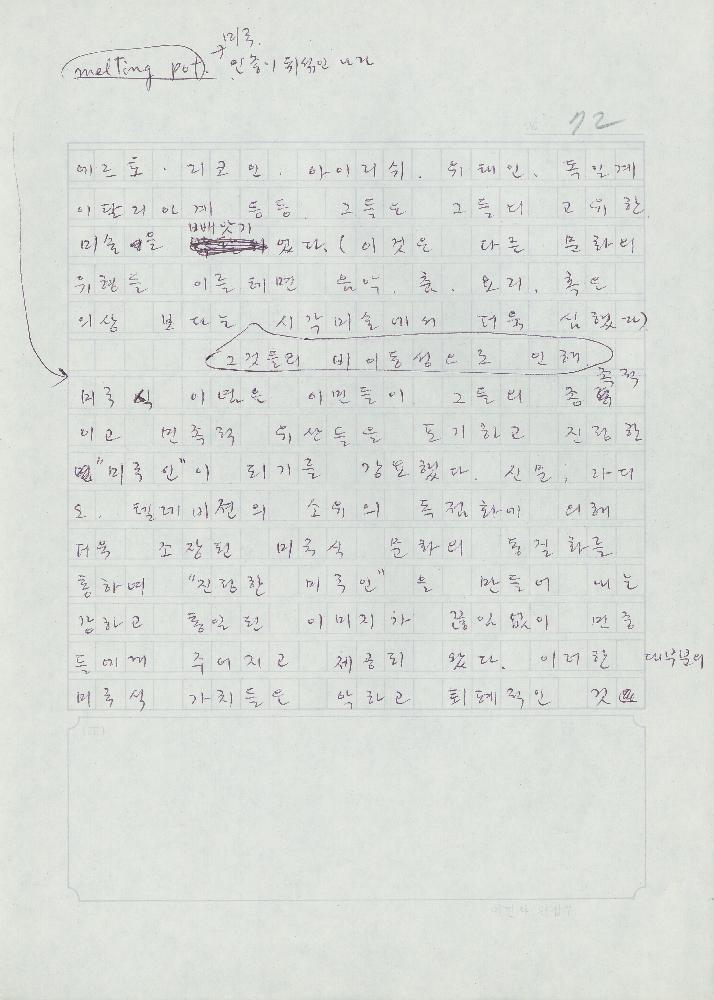 미국.
melting pot. 인종이 뒤섞인 나라
72
에르토·리코인. 아이리쉬. 유태인. 독일계
이탈리아계 등등. 그들은 그들의 고유한
빼앗기
미술을 었다. (이것은 다른 문화의
유형들 이를테면 음악, 춤. 요리, 혹은
의상 보다는 시각미술에서 더욱 심했다)
그것들의 비이동성으로 인해
족적
미국식 이념은 이민들이 그들의 종
이고 민족적 유산들을 포기하고 진정한
"미국인"이 되기를 강요했다. 신문, 라디
오. 텔레비젼의 소유의 독점화에 의해
더욱 조장된 미국식 문화의 동질화를
통하여 "진정한 미국인"을 만들어 내는
강하고 통일된 이미지가 끊임없이 민중
들에게 주어지고 제공되 왔다. 이러한 대부분의
미국식 가치들은 악하고 퇴폐적인 것